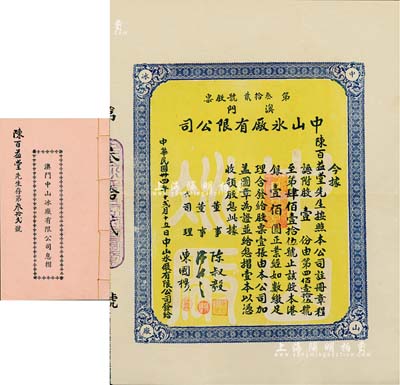 陳百益堂先生存第叁拾貳號
澳門中山冰廠有限公司息摺
中
冰
山
廠
第叁拾貳號股票
澳門
中山冰廠有限公司
今據
陳百益堂先生按照本公司註冊章程
認附股壹份由第四佰壹拾號
至第肆佰壹拾伍號止該股本港
銀壹佰圓正業經如數繳足
理合發給股票壹張由本公司加
蓋圖章為證並給息摺壹本以憑
收領股息此據
董事 陳叔毅
董事
司理 陳國
中華民國廿四年十弍月十五日中山冰廠有限公司發給
上海陽明拍賣